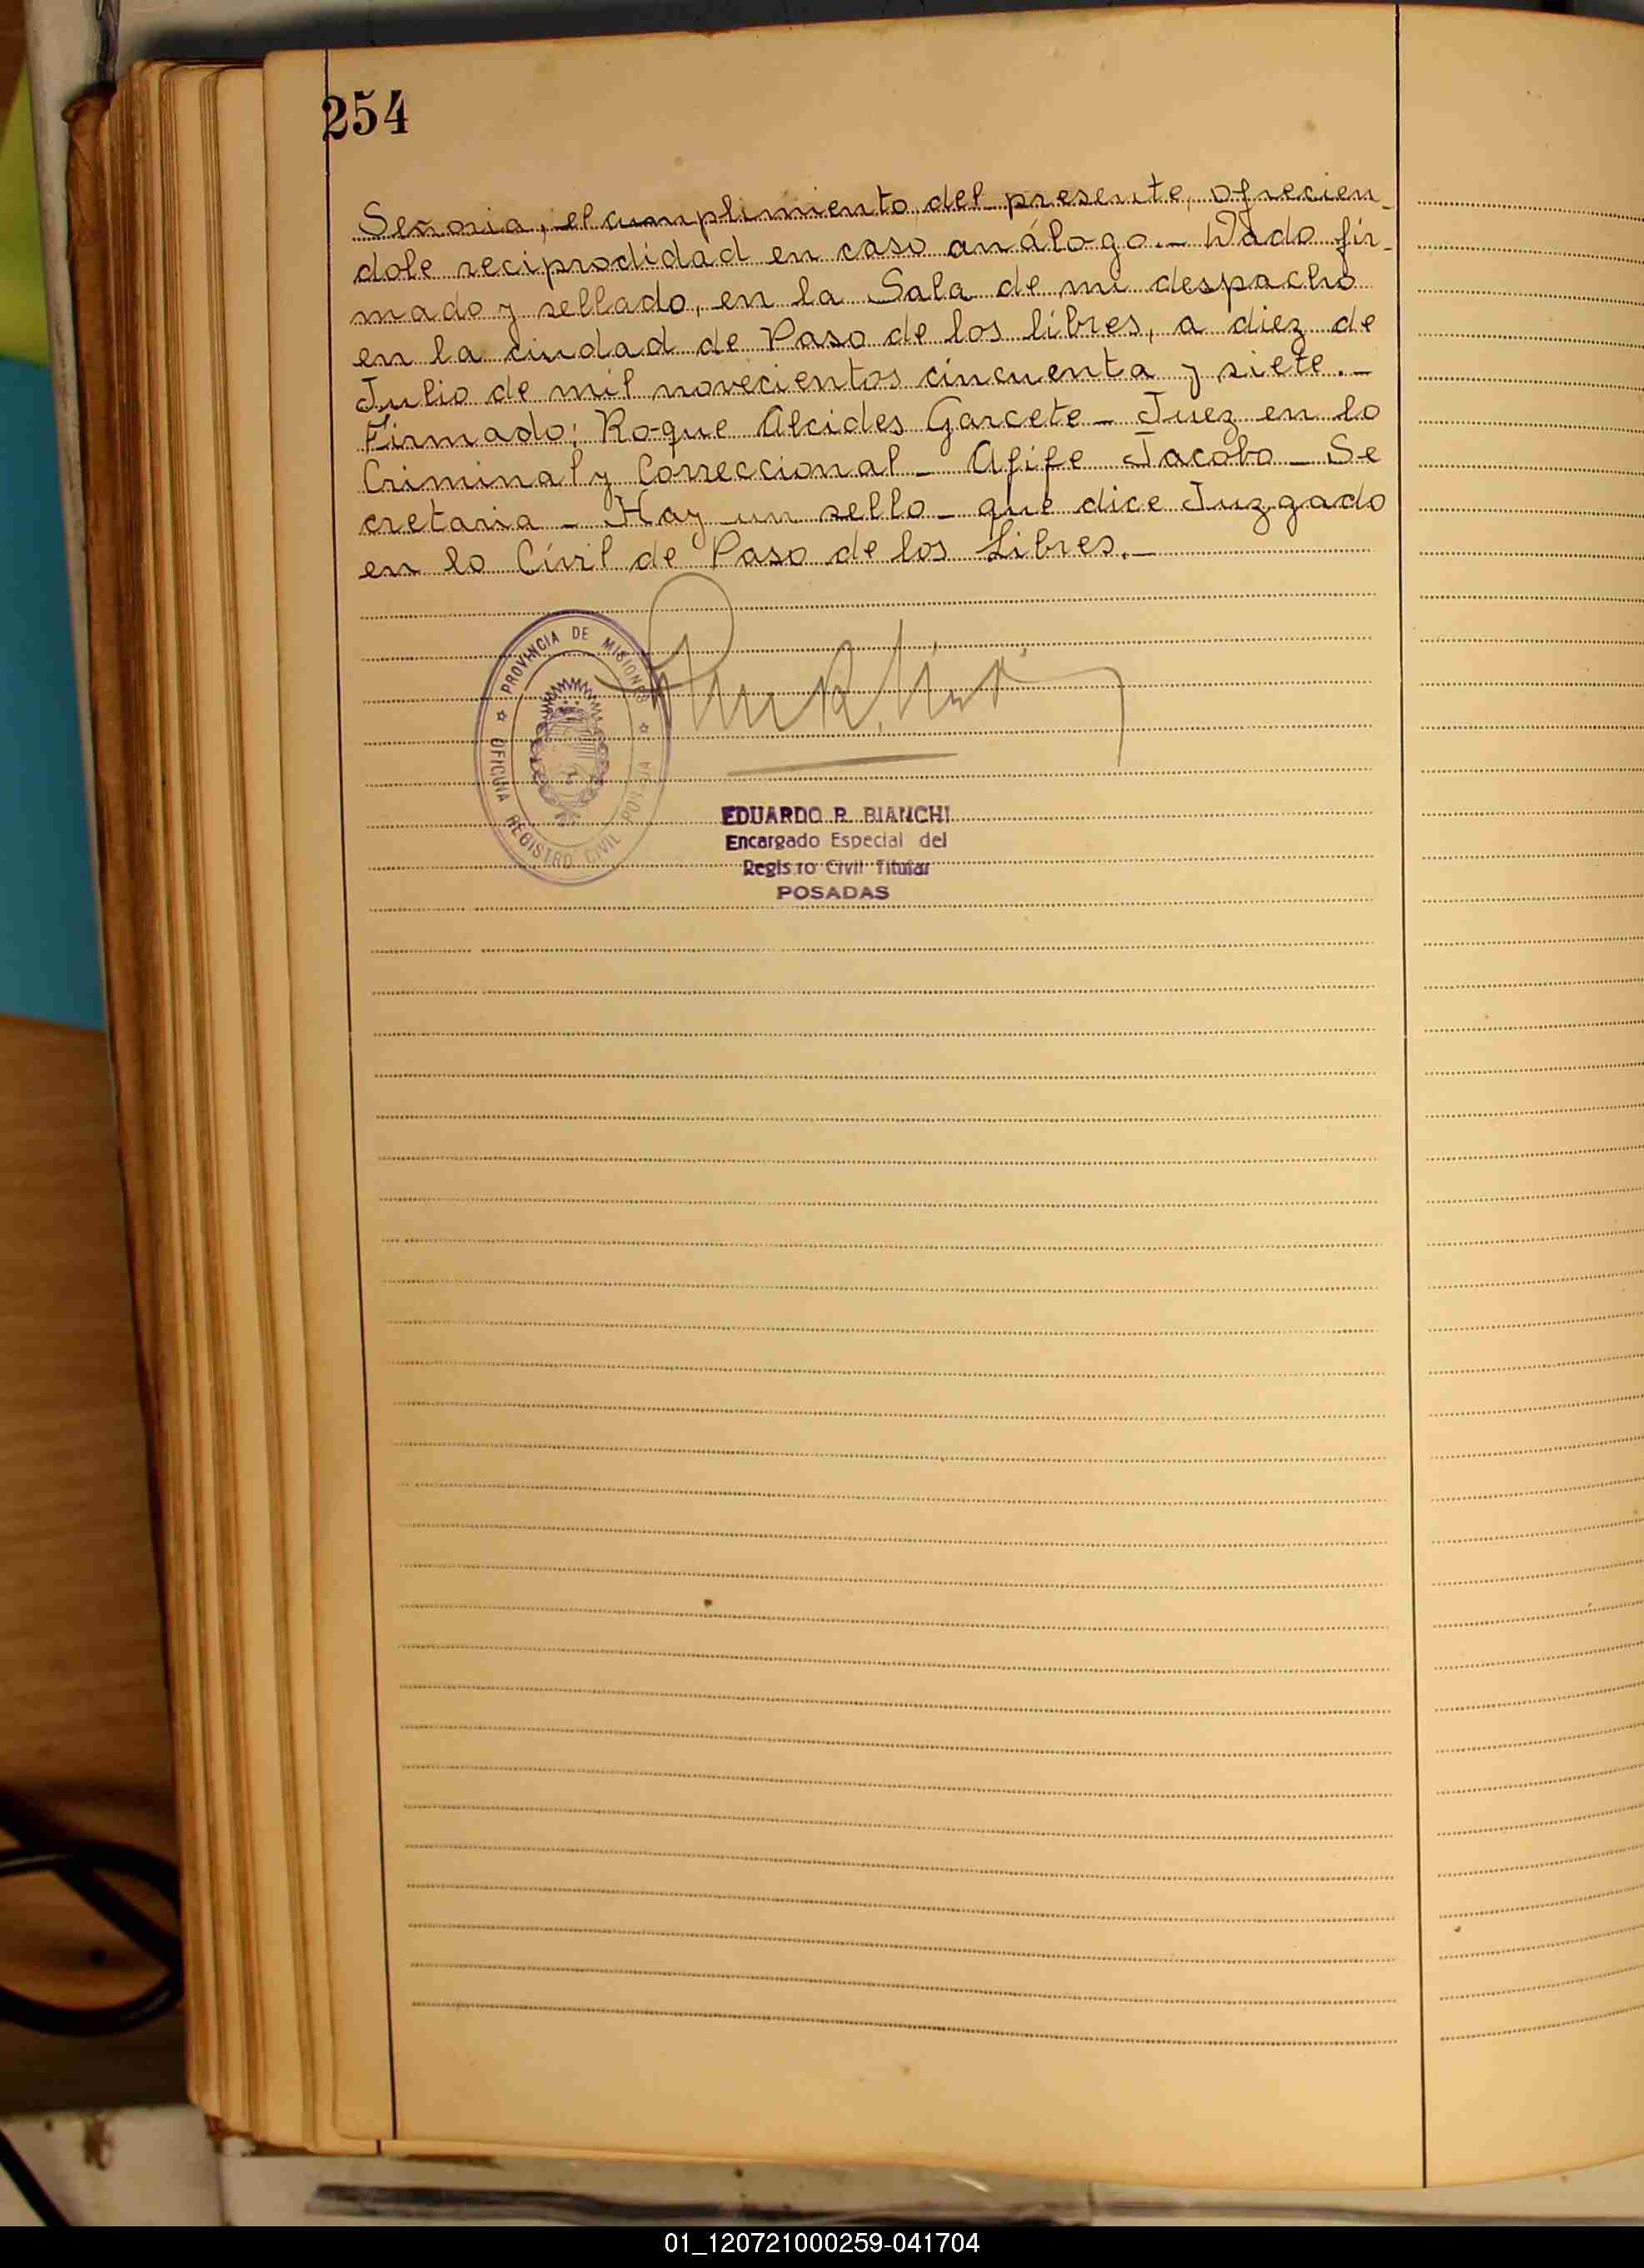 254
Señoria, el cumplimiento del presente, ofrecien_
dole reciprodidad en caso análogo._ Dado fir_
mado y sellado, en la Sala de mi despacho
en la ciudad de Paso de los libres, a diez de
Julio de mil novecientos cincuenta y siete._
Firmado: Roque Alcides Garcete_ Juez en lo
Criminal y Correccional_ Afife Jacobo_ Se
cretaria_ Hay un sello_ que dice Juzgado
en lo Civil de Paso de los Libres._
PROVINCIA DE MISIONES
OFICINA REGISTRO CIVIL
EDUARDO R. BIANCHI
Encargado Especial del
Regis ro Civil Titular
POSADAS
01_120721000259-041704